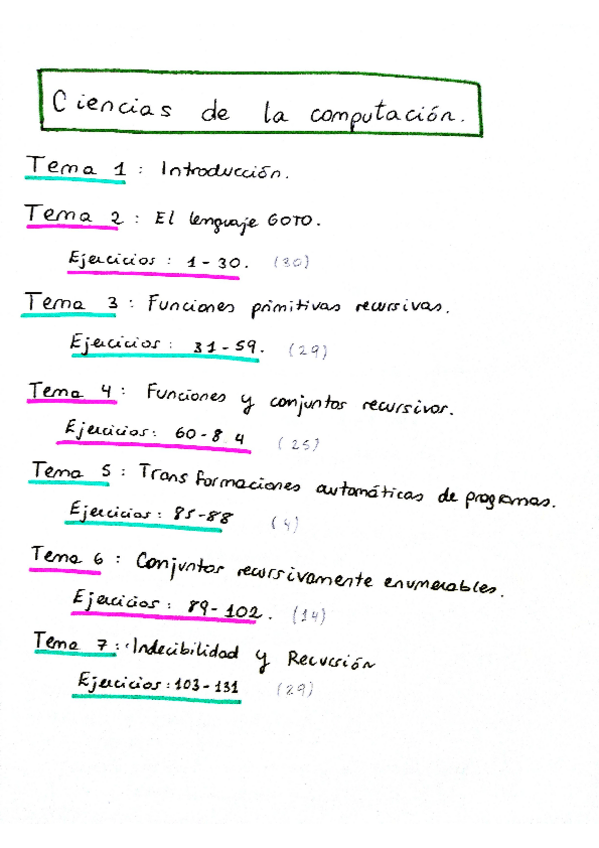 Ciencias de la computación.
Tema 1 : Introducción.
Tema 2 : El lenguaje GOTO.
Ejercicios : 1-30. (30)
Tema 3 : Funciones primitivas recursivas.
Ejercicios : 31-59. (29)
Tema 4 : Funciones y conjuntos recursivos.
Ejercicios : 60-8.4 (25)
Tema 5 : Transformaciones automáticas de programas.
Ejercicios : 85-88 (4)
Tema 6 : Conjuntos recursivamente enumerables.
Ejercicios : 89-102. (14)
Tema 7 : Indecibilidad y Recursión
Ejercicios : 103-131 (29)